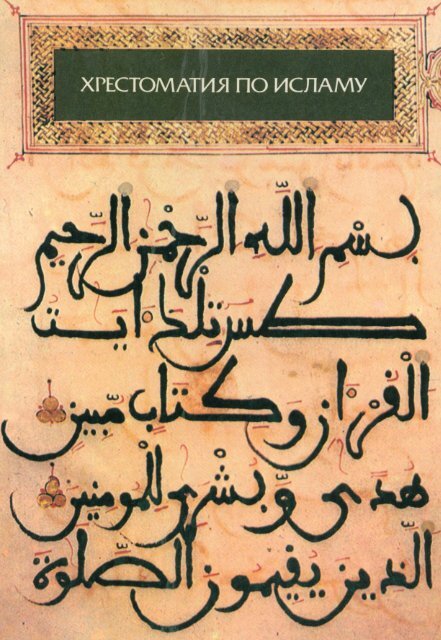 ХРЕСТОМАТИЯ ПО ИСЛАМУ
بسم الله الرحمن الرحيم
طس تلك ءايت
القرءان وكتاب مبين
هدى وبشرى للمومنين
الذين يقيمون الصلوة